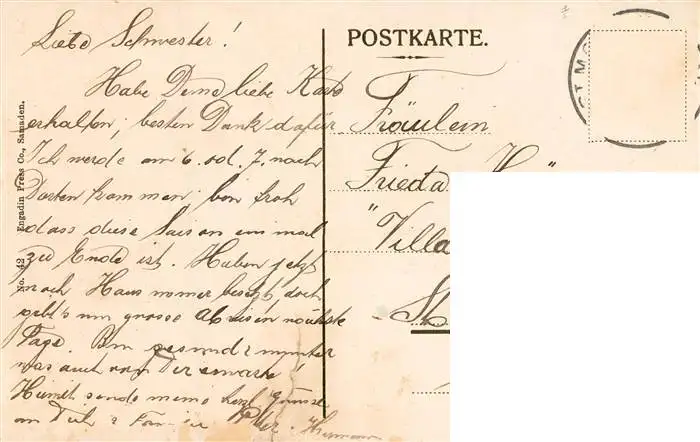 Liebe Schwester!
Habe Deine liebe Karte
erhalten, besten Dank dafür
Ich werde am 6. od. 7. nach
Dorten kommen, bin froh
dass diese Saison einmal
zu Ende ist. Haben jetzt
noch Haus immer besetzt doch
gibt's nun grosse Abreisen nächste
Tage. Bin gesund & munter
was auch von Dir erwarte!
Hiemit sende meine herzl. Grüsse
an Dich & Familie Hermann
No. 42 Engadin Press Co., Samaden.
POSTKARTE.
ST. M
Fräulein
Frieda
"Villa
St.